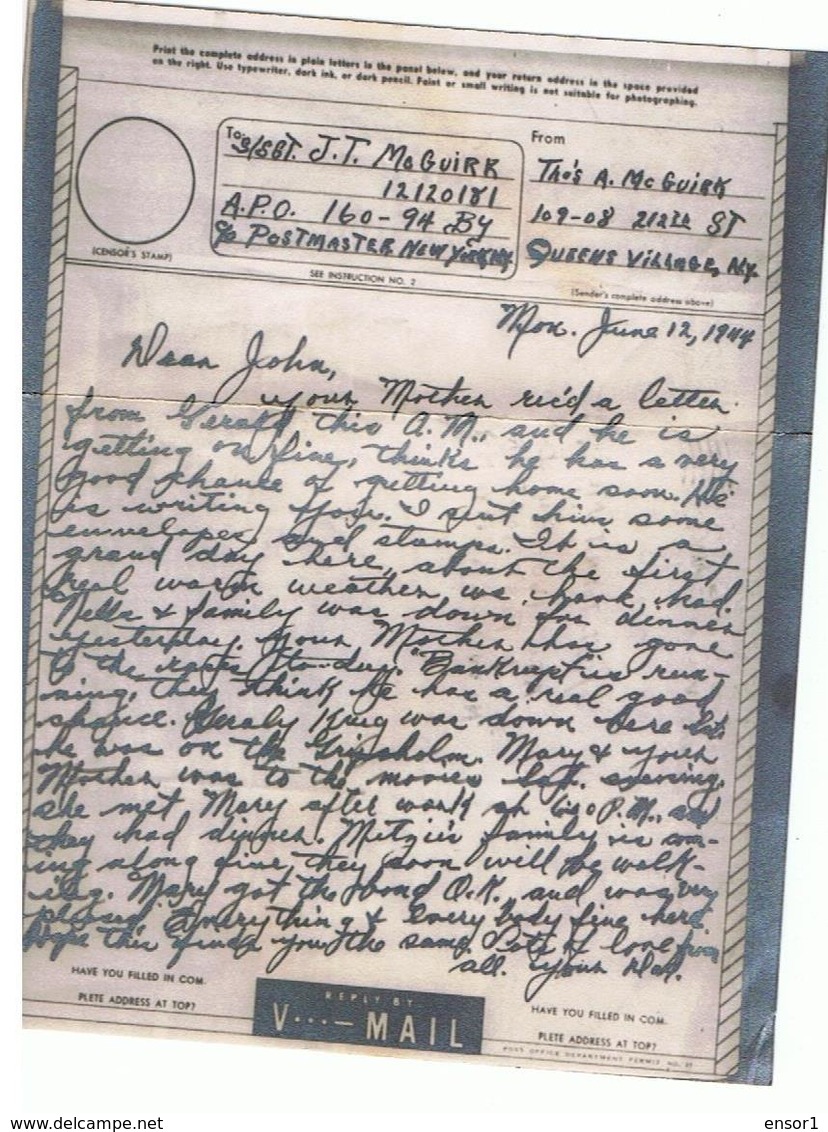 Print the complete address in plain letters in the panel below, and your return address in the space provided
on the right. Use typewriter, dark ink, or dark pencil. Faint or small writing is not suitable for photographing.
To
S/SGT. J.T. McGUIRK
12120181
A.P.O. 160-94 By
c/o POSTMASTER NEW YORK N.Y.
From
Tho's A. McGUIRK
109-08 212th ST
QUEENS VILLAGE, N.Y.
(CENSOR'S STAMP)
SEE INSTRUCTION NO. 2
(Sender's complete address above)
Mon. June 12, 1944
Dear John,
your Mother rec'd a letter
from Gerald this A.M., and he is
getting on fine, thinks he has a very
good chance of getting home soon. He
is writing you. I sent him some
envelopes and stamps. It is a
grand day here, about the first
real warm weather we have had.
Nella & family was down for dinner
yesterday. Your Mother has gone
to the races to-day. "Bankrupt" is run-
ning, they think he has a real good
chance. King was down here
he was on the Gripsholm. Mary & your
Mother was to the movies last evening,
she met Mary after work at P.M., and
they had dinner. Mitzie's family is com-
ing along fine they soon will be walk-
ing. Mary got the bond O.K. and was very
pleased. Everything & every body fine here.
hope this finds you the same. Lots of love from
all. Your Dad.
HAVE YOU FILLED IN COM-
PLETE ADDRESS AT TOP?
REPLY BY
V···— MAIL
HAVE YOU FILLED IN COM-
PLETE ADDRESS AT TOP?
POST OFFICE DEPARTMENT PERMIT NO.
www.delcampe.net
ensor1